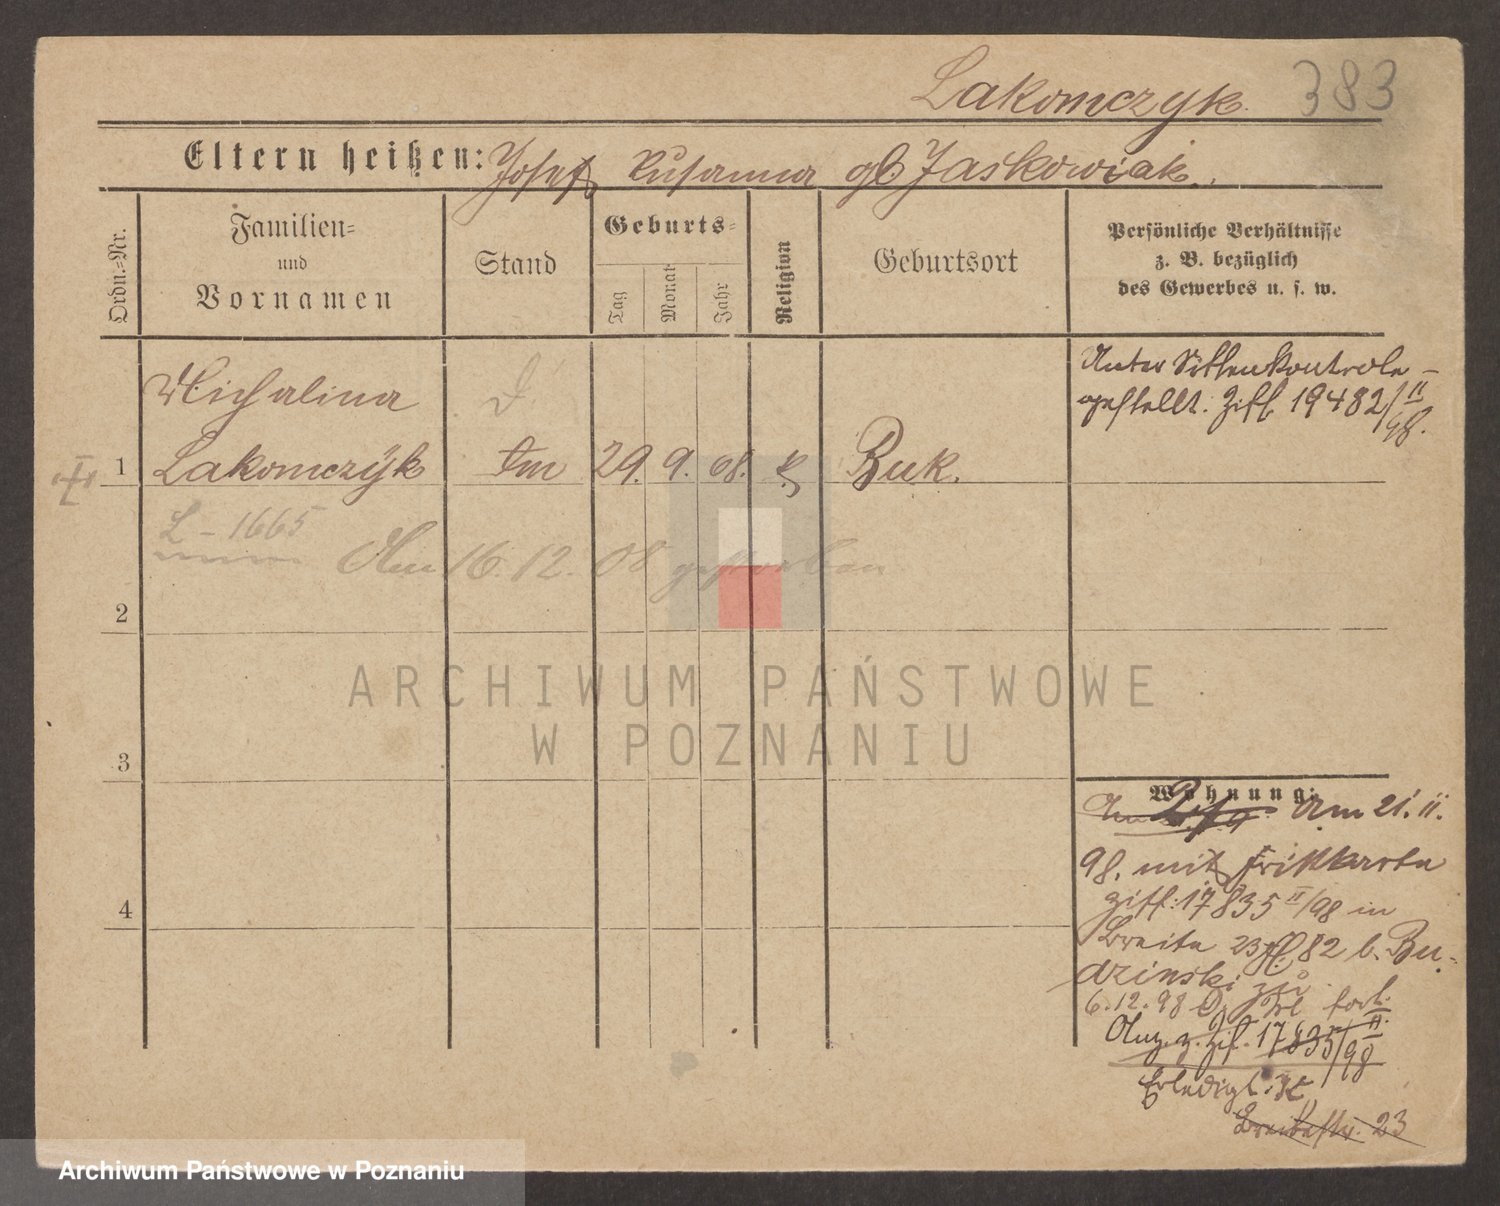 Lakomczyk 383
Eltern heißen: Josef Susanna gb. Jaskowiak.
Ordn.=Nr.
Familien=
und
Vornamen
Stand
Geburts=
Tag
Monat
Jahr
Religion
Geburtsort
Persönliche Verhältnisse
z. B. bezüglich
des Gewerbes u. s. w.
Michalina
Unter Sittenkontrole
gestellt. Ziff. 19482/II
98.
1 Lakomczyk 29. 9. 68. k Buk.
L - 1665
Am 16. 12. 08 gestorben
2
3
4
Wohnung:
Am 21. 11.
98. mit
Ziff: 17835 II/98 in
Breite 23 82 b. Bu-
dzinski zu
6. 12. 98
Anz. z. Zif. 17835/II
98
Erledigt.
Breitestr. 23
ARCHIWUM PAŃSTWOWE
W POZNANIU
Archiwum Państwowe w Poznaniu